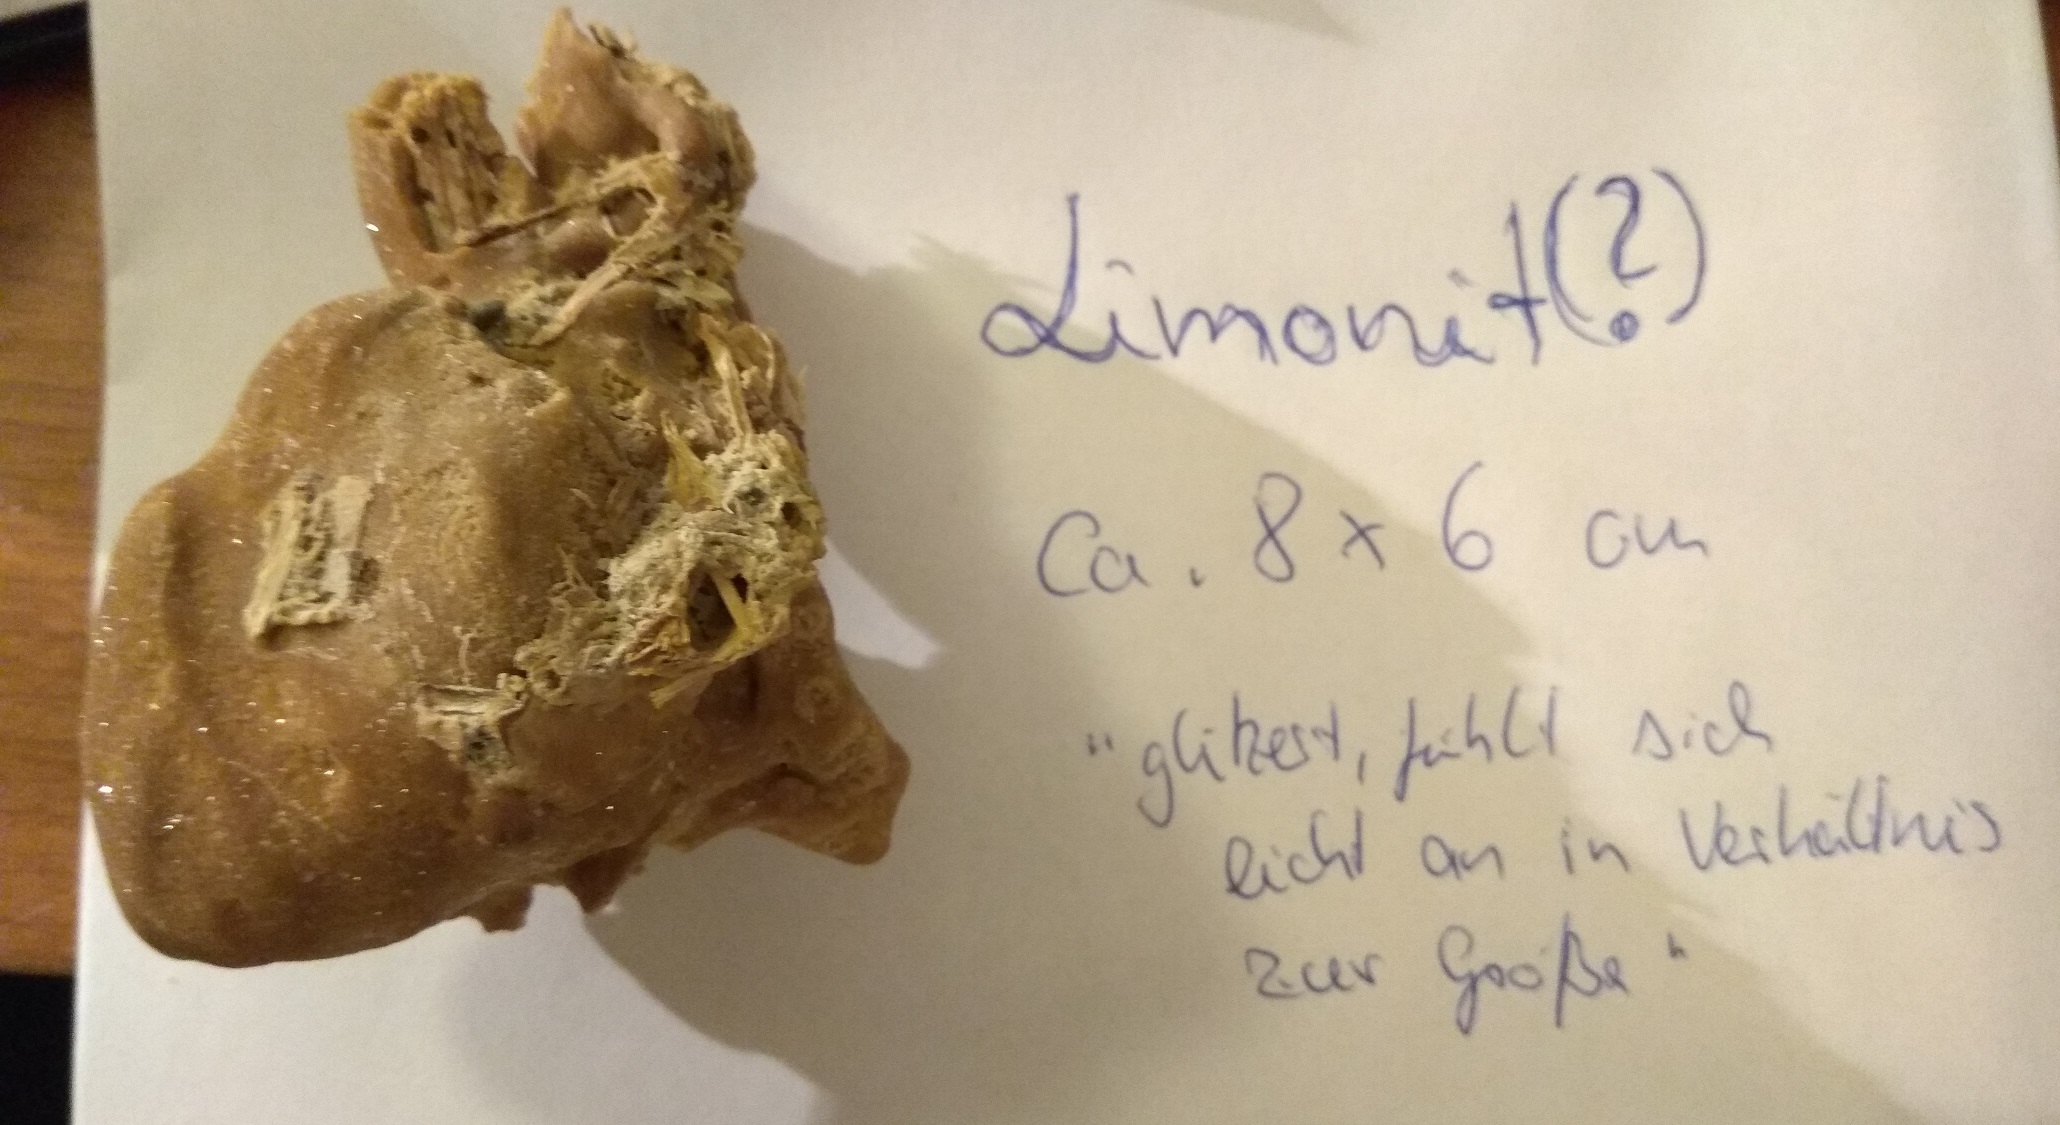 Limonit(?)
Ca. 8 x 6 cm
"glitzert, fühlt sich
leicht an in Verhältnis
zur Größe"